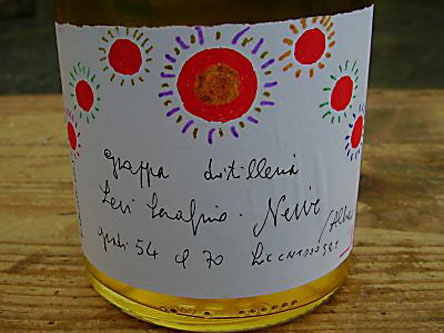 grappa distilleria
Levi Serafino. Neive /Alba
gradi 54 cl 70